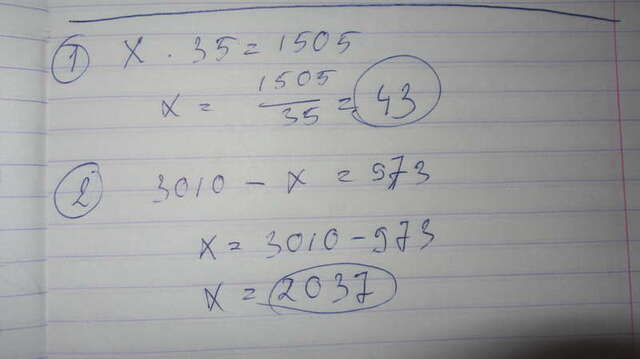 1 X · 35 = 1505
x = 1505/35 = 43
2 3010 - x = 973
x = 3010 - 973
x = 2037